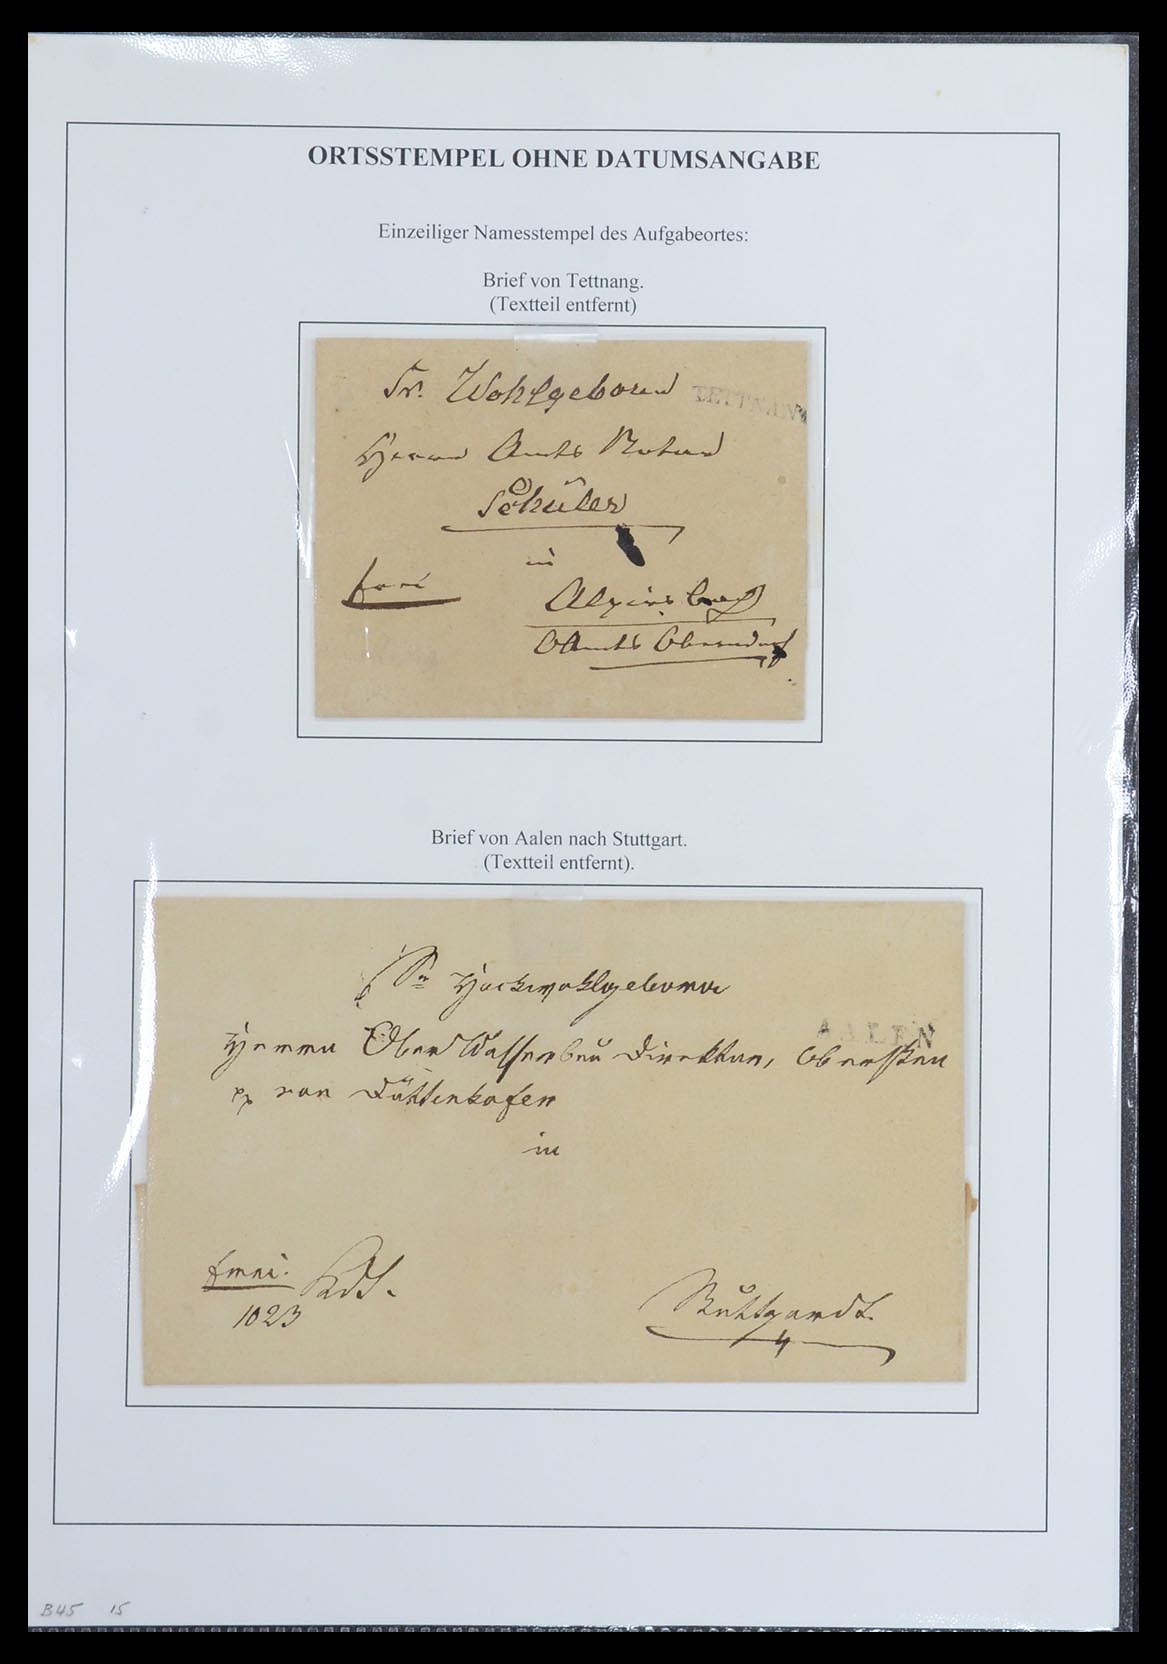 ORTSSTEMPEL OHNE DATUMSANGABE
Einzeiliger Namesstempel des Aufgabeortes:
Brief von Tettnang.
(Textteil entfernt)
Sr. Wohlgeboren
TETTNANG
Herrn Amts Notar
Schüler
in
frei
Alpirsbach
OAmts Oberndorf
Brief von Aalen nach Stuttgart.
(Textteil entfernt).
Sr Hochwohlgeboren
AALEN
Herrn Ober Wasserbau Direktor, Obersten
von Duttenhofer
in
frei.
1023
Stuttgardt.
B45 15